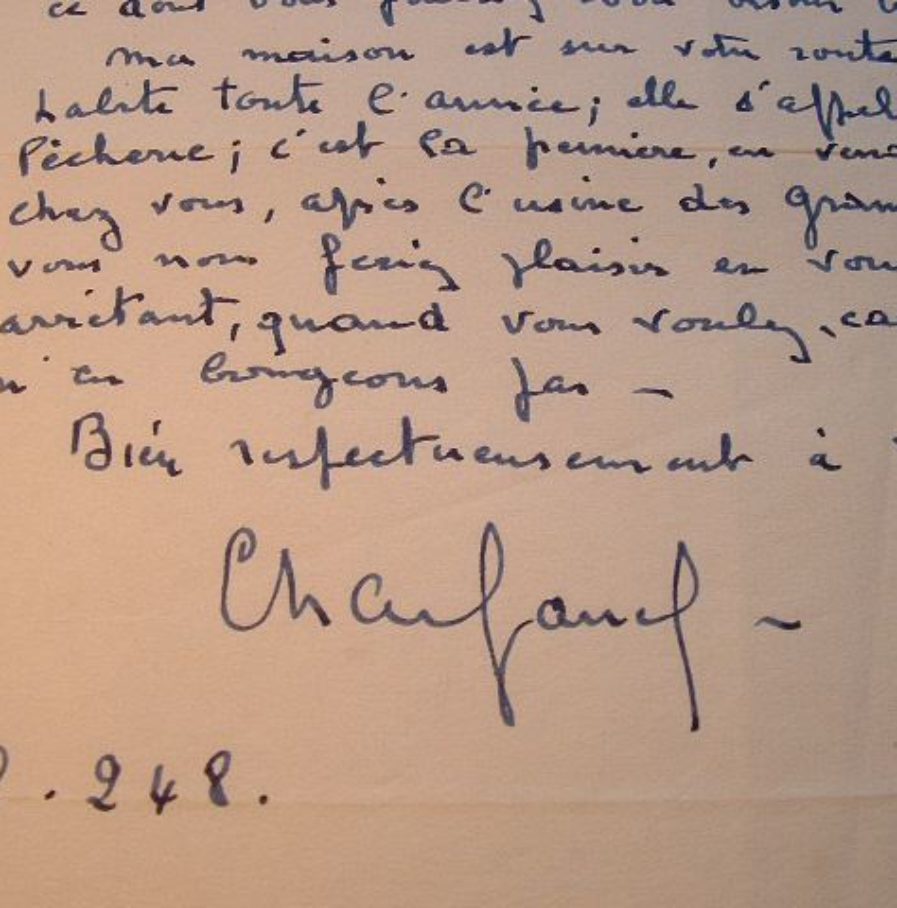 ce dont vous
ma maison est sur votre route
habite toute l'année; elle s'appel
Pêcherie; c'est la première, en vena
chez vous, après l'usine des Gran
vous nous feriez plaisir en vou
arrêtant, quand vous voulez, ca
n'en bougeons pas —
Bien respectueusement à
. 248.